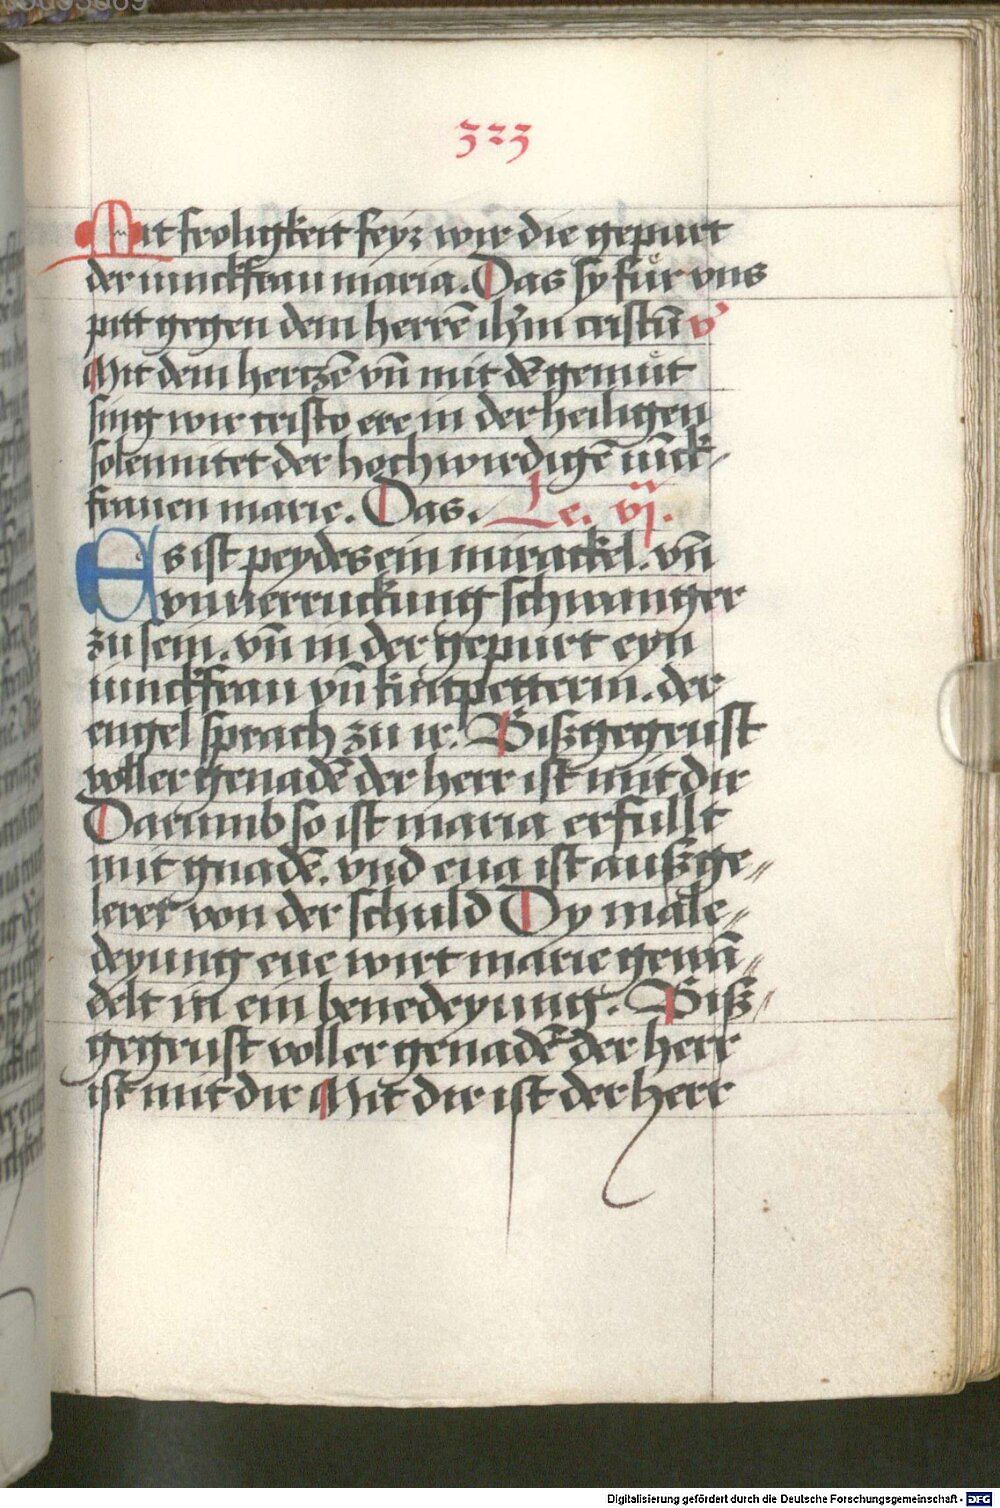 323
Mit froligkeit feyr wir die gepurt
der iunckfrau maria. Das sy fur vns
pitt gegen dem herrē ihm cristū v
Mit dem hertzē vn̄ mit dē gemüt
sing wir cristo ere in der heiligen
solennitet der hochwirdigē iunck
frauen marie. Das. Le. vj.
Es ist peydes ein mirackel. vn̄
vnuerruckung schwanger
zu sein. vn̄ in der gepurt eyn
iunckfrau vn̄ kintpetterin. der
engel sprach zu ir. Biß gegrust
voller genadē der herr ist mit dir
Darumb so ist maria erfullt
mit gnadē. vnd eua ist außge„
leret von der schuld Dy male„
deyung eue wirt marie gewā„
delt in ein benedeyung. Biß„
gegrust voller genadē der herr
ist mit dir Mit dir ist der herr
Digitalisierung gefördert durch die Deutsche Forschungsgemeinschaft - DFG